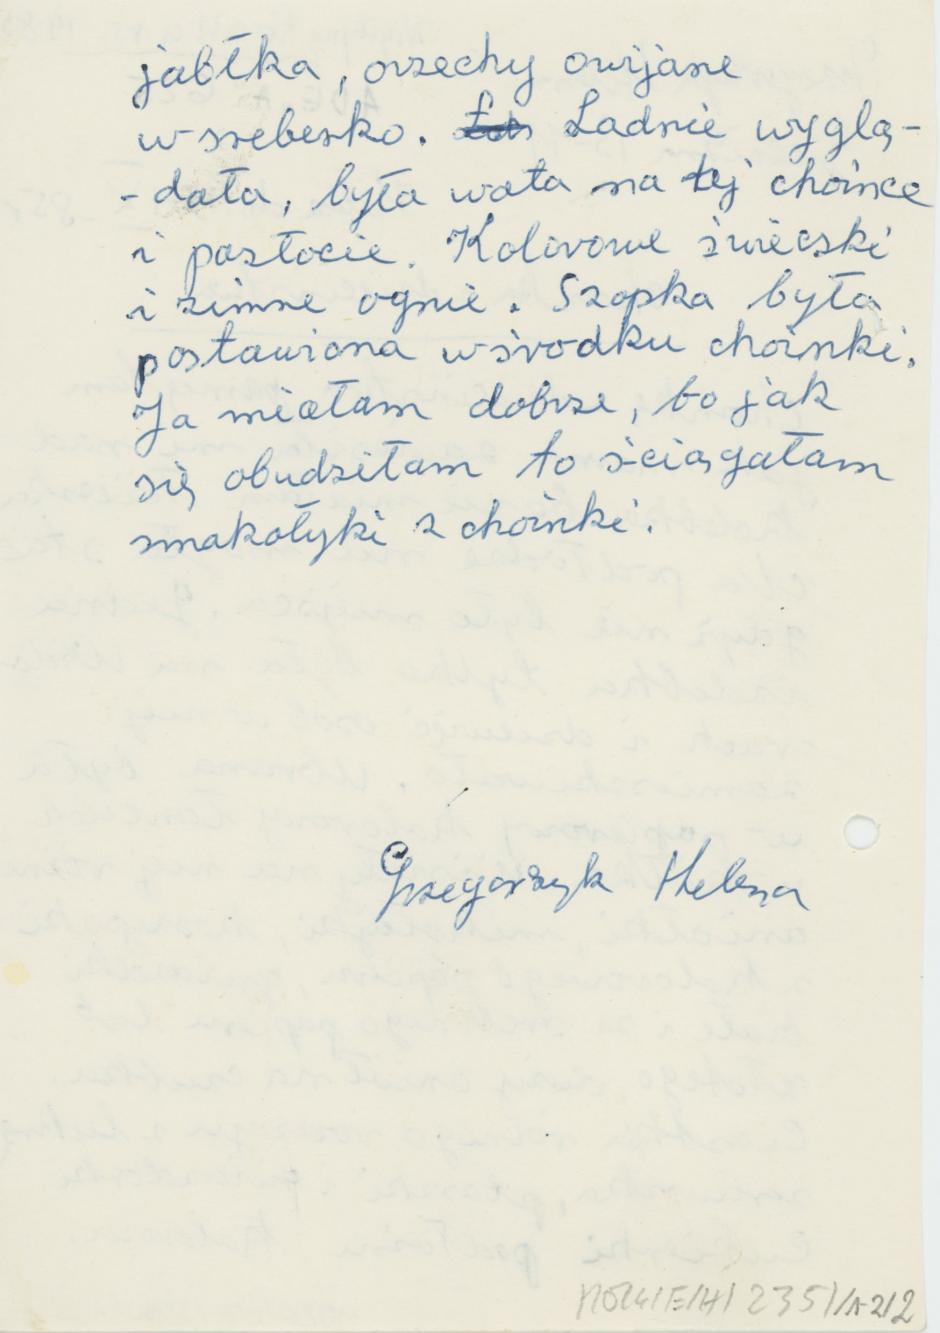 jabłka, orzechy owijane
w srebełko. Ładnie wyglą-
-dała, była wata na tej choince
i pazłocie. Kolorowe świeczki
i zimne ognie. Szopka była
postawiona w środku choinki.
Ja miałam dobrze, bo jak
się obudziłam to ściągałam
smakołyki z choinki.
Grzegorzyk Helena
/E/H/235//A-2/2